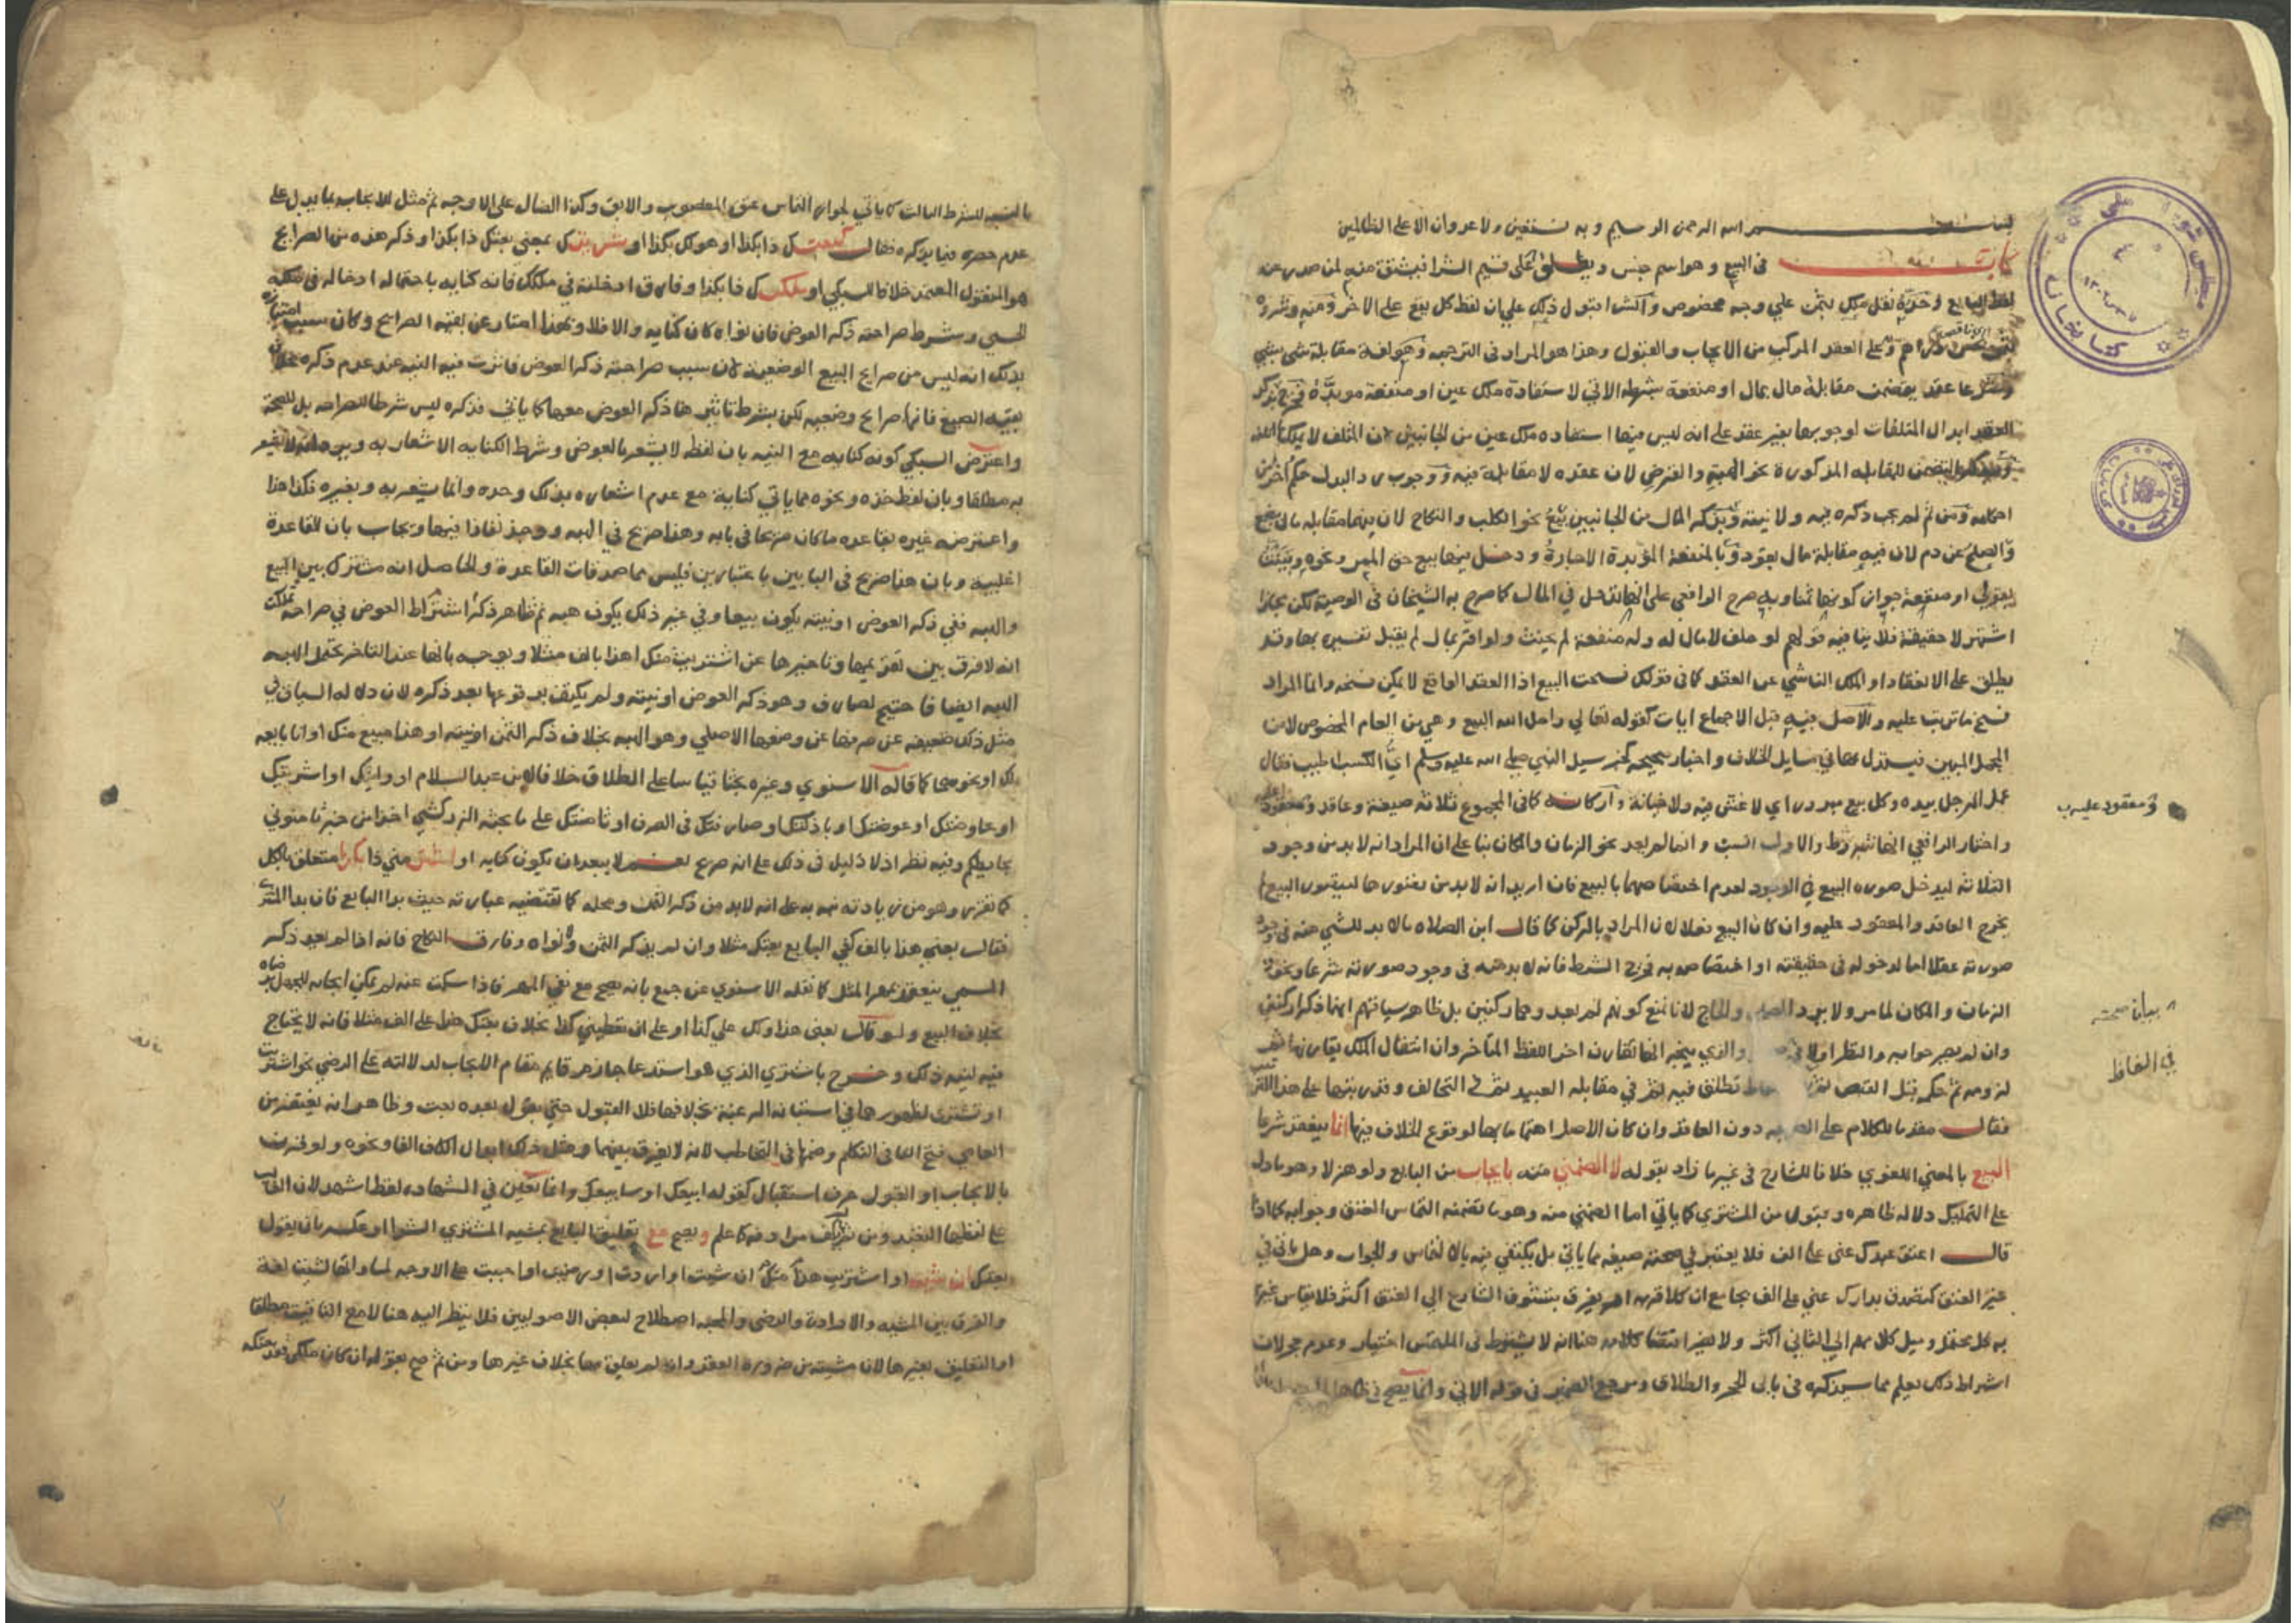 بسم الله الرحمن الرحيم وبه نستعين ولا عدوان الا على الظالمين
كتاب
في البيع وهو اسم جنس ويطلق على قسيم الشرا فيشتق منه لمن صدر عنه
نقل ملك بثمن على وجه مخصوص والشرا قبول ذلك على ان لفظ كل يقع على الاخر ومنه وشروه
بثمن بخس دراهم وعلى العقد المركب من الايجاب والقبول وهذا هو المراد في الترجمه وهو لغة مقابلة شي بشي
وشرعا عقد يتضمن مقابلة مال بمال او منفعة بشرطه الاتي لاستفادة ملك عين او منفعة موبدة
العقد ابدال المتلفات لوجوبها بغير عقد على انه ليس فيها استفاده ملك عين من الجانبين لان المتلف لا يملك
للمقابله المذكورة نحو الهبه والقرض لان عقده لا مقابلة فيه ووجوب رد البدل حكم اخر من
احكامه ومن ثم لم يجب ذكره فيه ولا نيته وبذكر المال من الجانبين بيع نحو الكلب والنكاح لان فيهما مقابله مال بغير
والصلح عن دم لان فيه مقابلة مال بقود وبالمنفعة المؤبدة الاجارة ودخل فيها بيع حق الممر ونحوه
او منفعة جواز كونها ثمنا وبه صرح الرافعي على انها تدخل في المال كما صرح به الشيخان في الوصية لكن مجازا
اشتهر لا حقيقة فلا ينافيه قولهم لو حلف لا مال له وله منفعة لم يحنث ولو اقر بمال لم يقبل تفسيره بها وقد
يطلق على الانعقاد او الملك الناشي عن العقد كما في قولك فسخت البيع اذا العقد الواقع لا يمكن فسخه وانما المراد
فسخ ما ترتب عليه والاصل فيه قبل الاجماع ايات كقوله تعالي واحل الله البيع وهي من العام المخصوص لا من
المجمل المبين فيستدل بها في مسايل الخلاف واخبار صحيحه كخبر سيل النبي صلى الله عليه وسلم اي الكسب اطيب فقال
عمل الرجل بيده وكل بيع مبرور اي لا غش فيه ولا خيانة واركانه كما في المجموع ثلاثه صيغة وعاقد ومعقود
ومعقود عليه
واختار الرافعي انها شروط والاول انسب وانما لم يعد نحو الزمان والمكان بنا على ان المراد انه لا بد من وجود
الثلاثه ليدخل صوره البيع في الوجود لعدم اختصاصهما بالبيع فان اريد انه لا بد من تصورها ليتصور البيع
يخرج العاقد والمعقود عليه وان كان البيع فعلا لان المراد بالركن كما قال ابن الصلاح ما لا بد للشي منه في وجود
صورته عقلا اما لدخوله في حقيقته او اختصاصه به فخرج الشرط فانه لا بد منه في وجود صورته شرعا ونحو
الزمان والمكان لما مر ولا يرد والحاج لانا نمنع كونهم لم يعدوهما ركنين بل ظاهر سياقهم انهما
بيان صحته
وان لم يصر حوابه والنظر اولا والذي يتجه انها تقارن اخر اللفظ المتأخر وان انتقال الملك يقارنها
في الفاظ
لزومه ثم حكمه قبل القبض ثم تطلق فيه ثم في مقابله العبيد ثم التحالف وقد رتبها على هذا
فقال مقدما للكلام على دون العاقد وان كان الاصل اهتماما بها لوقوع الخلاف فيها انما ينعقد شرعا
البيع بالمعني اللغوي خلافا للشارح في غير ما زاد بقوله لا الضمني منه بايجاب من البايع ولو هزلا وهو ما دل
على التمليك دلاله ظاهره وقبول من المشتري كما ياتي اما الضمني منه وهو ما تضمنه التماس العتق وجوابه كما اذا
قال اعتق عبدك عني على الف فلا يعتبر في صحته صيغه مما ياتي بل يكتفي فيه بالالتماس والجواب وهل ياتي في
غير العتق كتصدق بدارك عني على الف بجامع ان كلا قربه او يفرق بتشوف الشارع الي العتق اكثر فلا يقاس غيره
به كل محتمل وميل كلامهم الي الثاني اكثر ولا يضر اقتضا كلامه هنا انه لا يشترط في الملتمس اختيار وعدم حجر لان
اشتراط ذلك يعلم مما سيذكره في بابي الحجر والطلاق ومرجع الضمير في قوله الاتي وانما يصح في
بالنسبه للشرط الثالث كما ياتي لجواز التماس عتق المغصوب والابق وكذا الضال على الاوجه ثم مثل للايجاب بما يدل على
عدم حصره فيما يذكره فقال كبعتك ذا بكذا او هو لك بكذا او شريتك بمعني بعتك ذا بكذا وذكر هذه من الصرايح
هو المنقول المعتمد خلافا للسبكي او ملكتك ذا بكذا وفارق ادخلته في ملكك فانه كنايه باحتماله ادخاله في ملكه
الحسي وشرط صراحته ذكر العوض فان نواه كان كنايه والا فلا وبهذا امتاز عن بقيه الصرايح وكان سبب امتيازه
بذلك انه ليس من صرايح البيع الوضعية لان سبب صراحته ذكر العوض فاثرت فيه النيه عند عدم ذكره بخلاف
بقيه الصيغ فانها صرايح وضعيه لكن بشرط تاثيرها ذكر العوض معها كما ياتي فذكره ليس شرطا للصراحه بل للصحة
واعترض السبكي كونه كنايه مع النيه بان لفظه لا يشعر بالعوض وشرط الكنايه الاشعار به
به مطلقا وبان لفظ خذه ونحوه مما ياتي كناية مع عدم اشعاره بذلك وحده وانما يشعر به وبغيره فكذا هذا
واعترضه غيره بقاعده ما كان صريحا في بابه وهذا صريح في الهبه ووجد نفاذا فيها ويجاب بان القاعدة
اغلبيه وبان هذا صريح في البابين باعتبارين فليس مما صدقات القاعدة والحاصل انه مشترك بين البيع
والهبه ففي ذكر العوض او نيته يكون بيعا وفي غير ذلك يكون هبه ثم ظاهر ذكر اشتراط العوض في صراحه ملكتك
انه لا فرق بين تقديمها وتاخيرها عن اشتريت منك هذا بالف مثلا ويوجه بانها عند التاخر تحتمل الهبه
الهبه ايضا فاحتيج لصارف وهو ذكر العوض او نيته ولم يكتف بوقوعها بعد ذكره لان دلاله السياق في
مثل ذلك ضعيفه عن صرفها عن وضعها الاصلي وهو الهبه بخلاف ذكر الثمن او نيته او هذا مبيع منك او انا بايعه
لك او نحوهما كما قاله الاسنوي وغيره بحثا قياسا على الطلاق خلافا لابن عبد السلام او وليتك او اشركتك
او عاوضتك او عوضتك او باذلتك او صارفتك في الصرف او ثامنتك على ما بحثه الزركشي اخذا من خبر ثامنوني
بحايطكم وفيه نظر اذ لا دليل في ذلك على انه صريح نعم لا يبعد ان يكون كنايه او اشتر مني ذا بكذا متعلق بالكل
كما تقرر وهو من زيادته نبه به على انه لا بد من ذكر الثمن ومحله كما تقتضيه عبارته حيث بدا البايع فان بدا المشتري
فقال بعني هذا بالف كفي البايع بعتك مثلا وان لم يذكر الثمن ولا نواه وفارق النكاح فانه اذا لم يعد ذكر
المسمي ينعقد بمهر المثل كما نقله الاسنوي عن جمع بانه يصح مع نفي المهر فاذا سكت عنه لم يمكن ايجابه
بخلاف البيع ولو قال بعني هذا ولك علي كذا او على ان تعطيني كذا بخلاف بعتك هذا على الف مثلا فانه لا يحتاج
فيه لنيه ذلك وخرج باشتري الذي هو استدعا جازم قايم مقام الايجاب لدلالته على الرضي نحو اشتريت
او تشتري لظهورها في استبانه الرغبة بخلافها فلا القبول حتي يقول بعده بعت وظاهر انه يغتفر من
العامي فتح التا في التكلم وضمها في التخاطب لانه لا يفرق بينهما ومثل ذلك ابدال الكاف الفا ونحوه ولو قرن
بالايجاب او القبول حرف استقبال كقوله ابيعك او سابيعك وانما تعين في الشهاده لفظ اشهد لان
على لفظها التعبد ومن لم يكف مرادفه كاعلم ويصح مع تعليق البايع بمشيه المشتري الشرا او عكسه بان يقول
بعتك ان شيت او اشتريت هذا منك ان شيت او اردت او رضيت او احببت على الاوجه لمساواتها لشيت لغة
والفرق بين المشيه والارادة والرضي والمحبه اصطلاح لبعض الاصوليين فلا ينظر اليه هنا لا مع التاقيت مطلقا
او التعليق بغيرها لان مشيته من ضروره العقد وان لم يعلق بها بخلاف غيرها ومن ثم صح بقوله ان كان ملكي فقد بعتكه